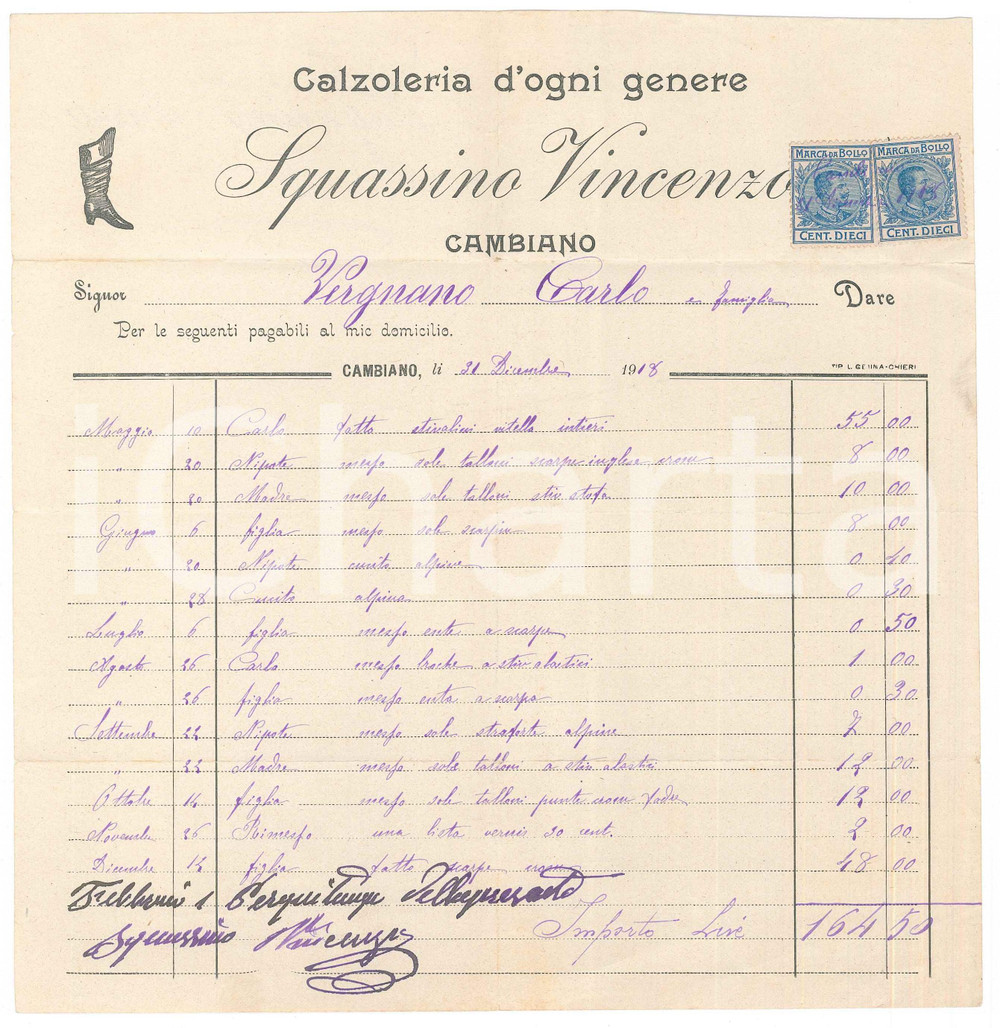 Calzoleria d'ogni genere
Squassino Vincenzo
MARCA DA BOLLO MARCA DA BOLLO
CENT. DIECI CENT. DIECI
CAMBIANO
Signor Vergnano Carlo e famiglia Dare
Per le seguenti pagabili al mio domicilio.
CAMBIANO, li 31 Dicembre 1918
TIP. L. GEUNA-CHIERI
Maggio 10 Carlo fatto stivalini vitello intieri 55 00
" 20 Nipote messo sole talloni scarpe inglese crom 8 00
" 20 Madre messo sole talloni stiv stofa 10 00
Giugno 6 figlia messo sole scarpin 8 00
" 20 Nipote cucito alpine 0 40
" 28 Cucito alpina 0 30
Luglio 6 figlia messo a scarpe 0 50
Agosto 26 Carlo messo broche a stiv elastici 1 00
" 26 figlia messo a scarpa 0 30
Settembre 22 Nipote messo sole straforte alpine 7 00
" 22 Madre messo sole talloni a stiv elastici 12 00
Ottobre 14 figlia messo sole talloni punte crom 12 00
Novembre 26 Rimesso una lista vernis 30 cent. 2 00
Dicembre 14 figlia fatto scarpe crom 48 00
Febbraio 1 Per
Squassino Vincenzo
Importo Lire 164 50
iCharta